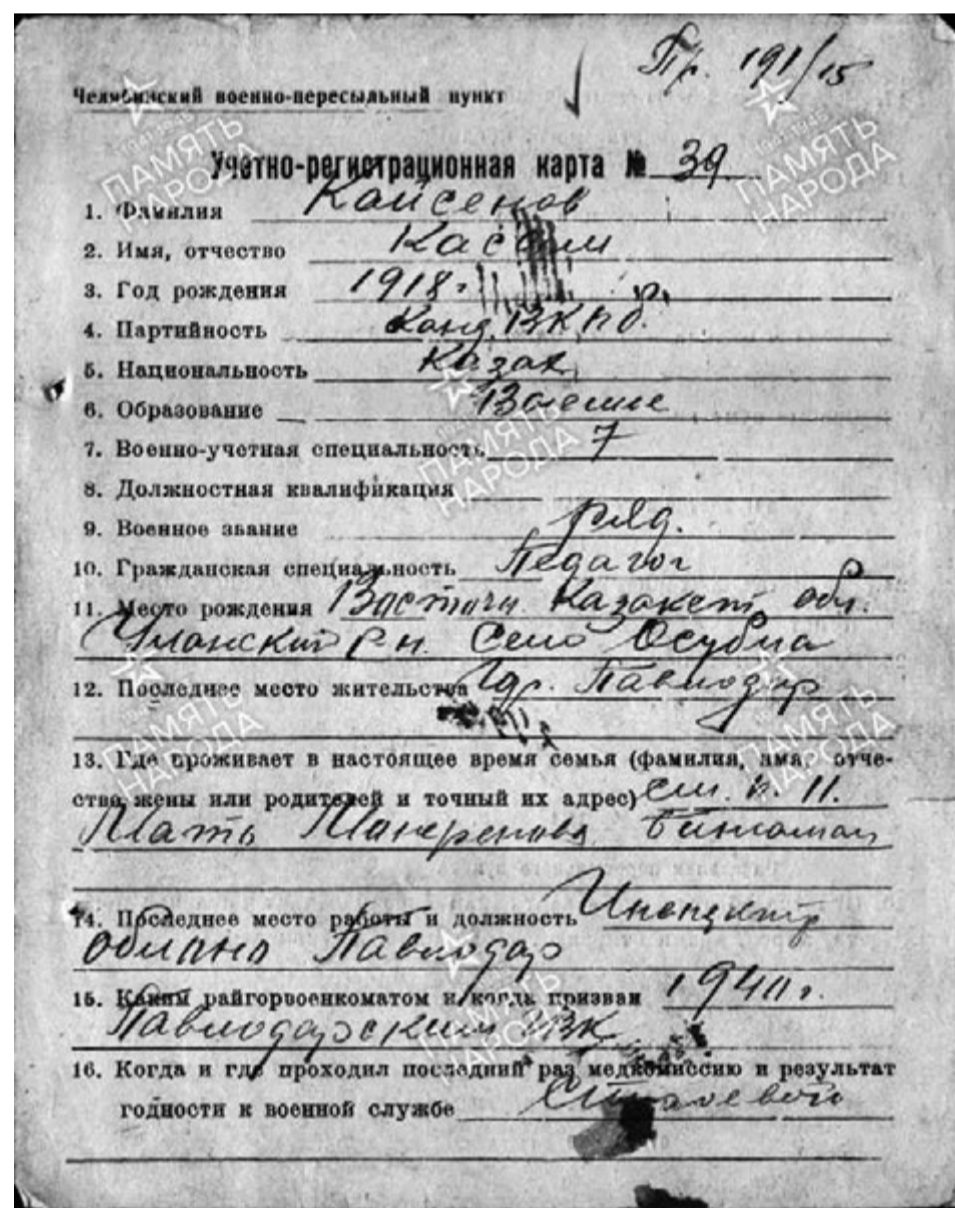 Пр. 191/15
Челябинский военно-пересыльный пункт
Учетно-регистрационная карта № 39
1. Фамилия Кайсенов
2. Имя, отчество Касым
3. Год рождения 1918 г.
4. Партийность Канд. ВКПб.
5. Национальность Казах
6. Образование
7. Военно-учетная специальность 7
8. Должностная квалификация
9. Военное звание ряд.
10. Гражданская специальность Педагог
11. Место рождения Казахст. обл.
Уланский р-н. Село
12. Последнее место жительства гор. Павлодар
13. Где проживает в настоящее время семья (фамилия, имя, отче-
ства жены или родителей и точный их адрес) см. п. 11.
Мать
14. Последнее место работы и должность Инспектор
Облано Павлодар
15. Каким райгорвоенкоматом и когда призван
Павлодарским
16. Когда и где проходил последний раз медкомиссию и результат
годности к военной службе Строевой
1941-1945
ПАМЯТЬ
НАРОДА